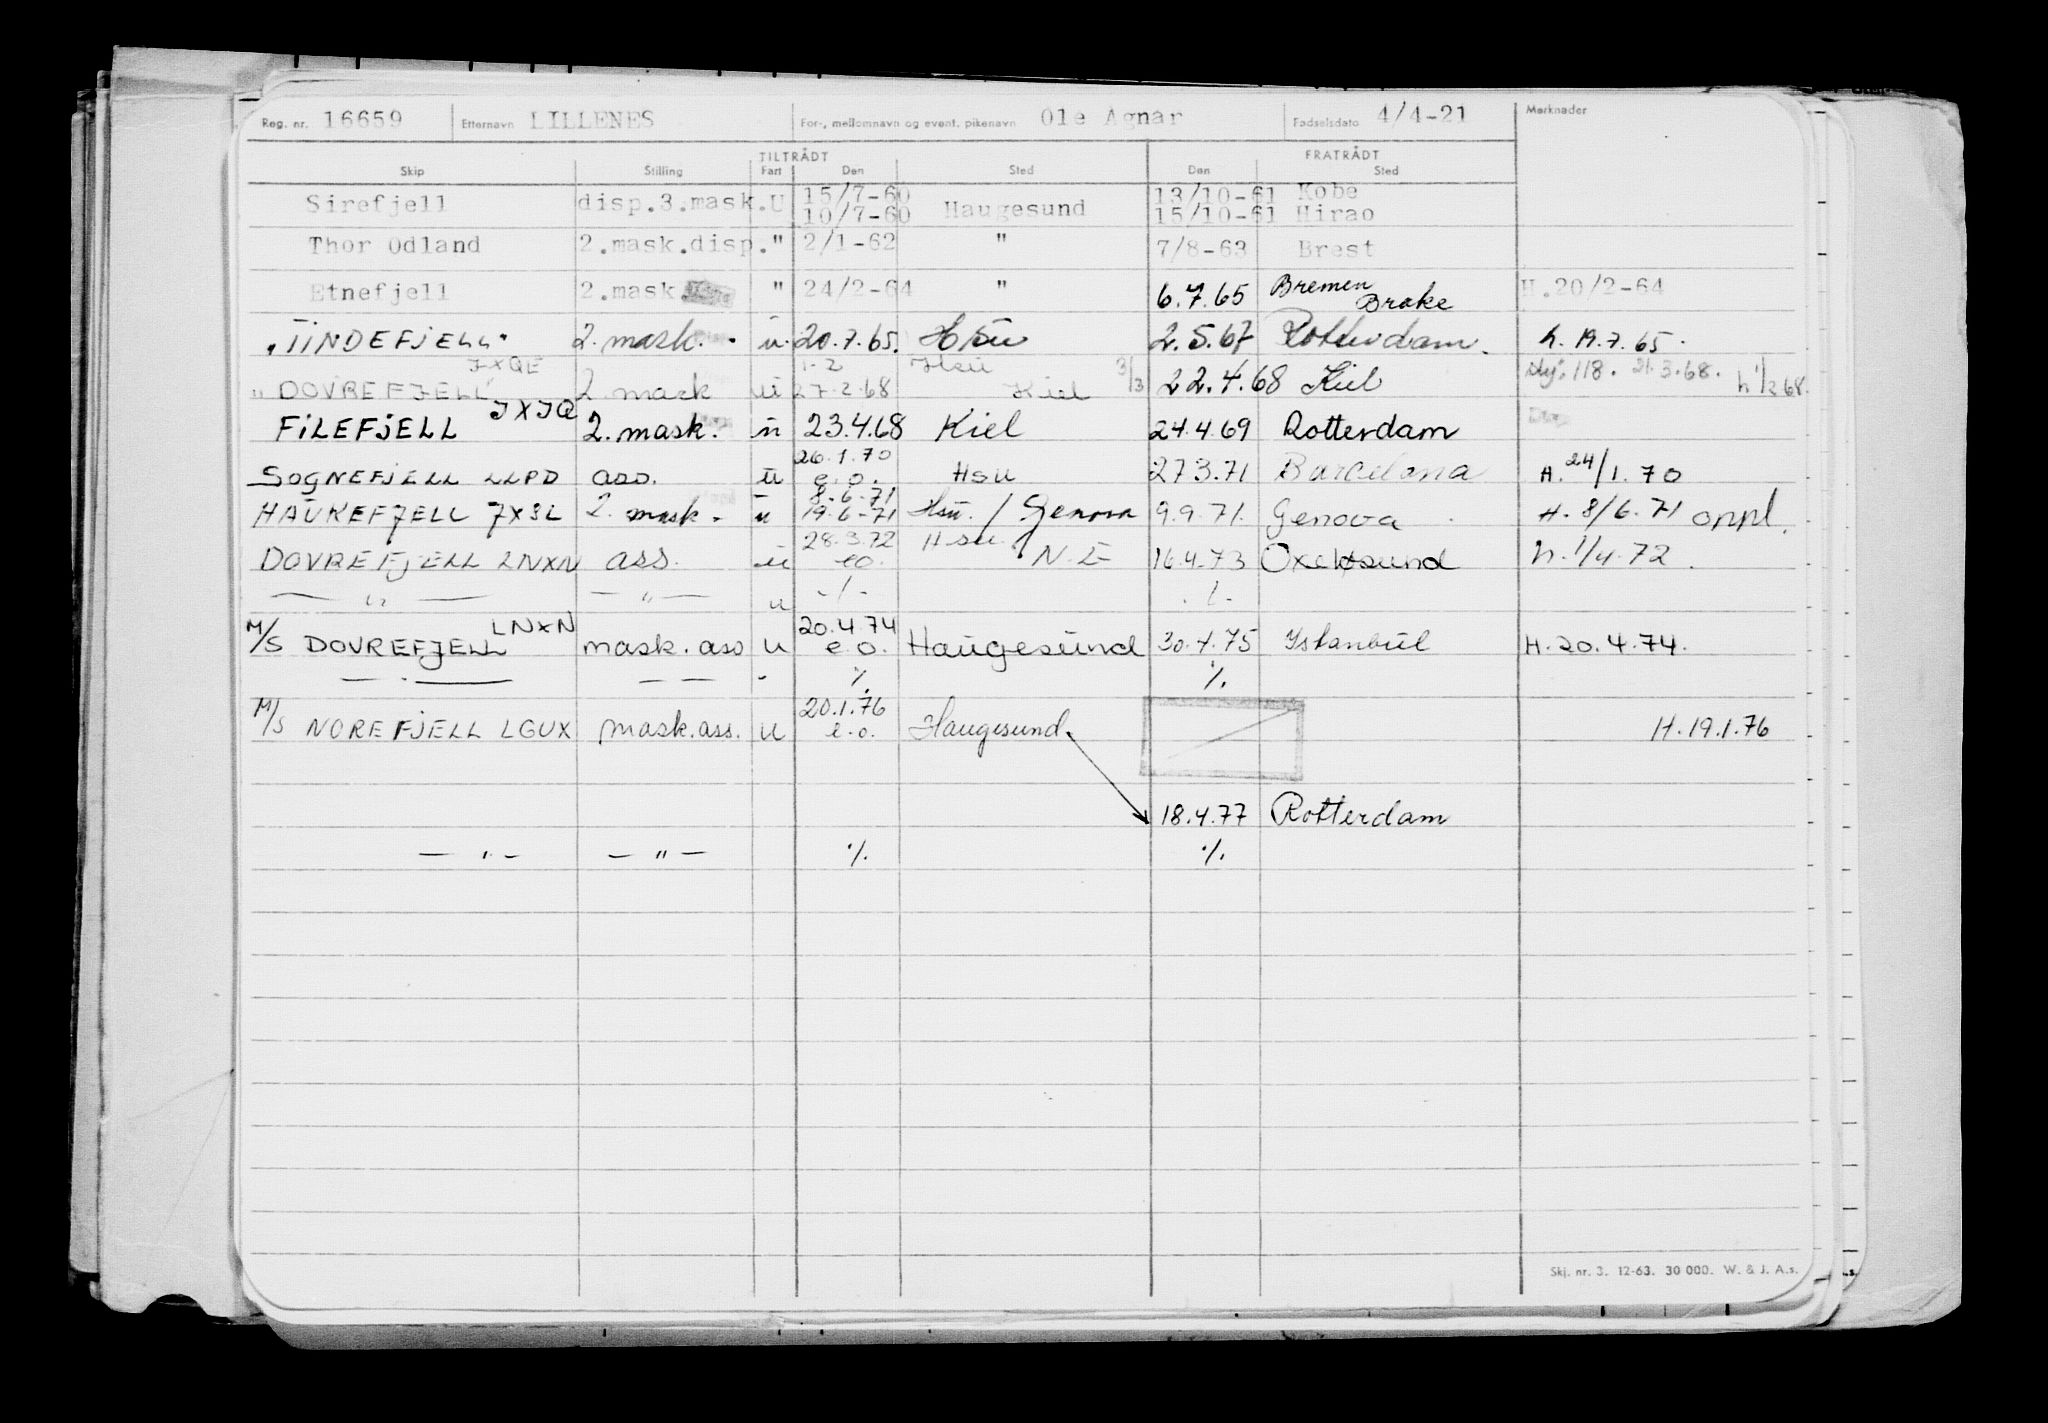 Reg. nr. 16659 Etternavn LILLENES For-, mellomnavn og event. pikenavn Ole Agnar Fødselsdato 4/4-21 Merknader
TILTRÅDT FRATRÅDT
Skip Stilling Fart Den Sted Den Sted
15/7-60 13/10-61 Kobe
Sirefjell disp.3.mask. U 10/7-60 Haugesund 15/10-61 Hirao
Thor Odland 2.mask.disp. " 2/1-62 " 7/8-63 Brest
Etnefjell 2.mask " 24/2-64 " 6.7.65 Bremen Brake H.20/2-64
"TINDEFJELL" 2. mask. u. 20.7.65. Hsu 2.5.67 Rotterdam. h. 19.7.65.
JXQE 1-2 Hsu 3/3
"DOVREFJELL" 2. mask u 27.2.68 Kiel 22.4.68 Kiel 118. 21.3.68. h 1/2 68.
FILEFJELL JXJQ 2. mask. u 23.4.68 Kiel 24.4.69 Rotterdam
26.1.70
SOGNEFJELL LLPD ass. u e.o. Hsu 27.3.71 Barcelona H. 24/1.70
8-6-71
HAUKEFJELL JXSL 2. mask. u 19-6-71 Hsu. / Genova 9.9.71. Genova H. 8/6.71 oppl.
28.3.72 Hsu.
DOVREFJELL LNXN ass. u eo. / N.L 16.4.73 Oxelösund h. 1/4.72.
— " — — " — u -/- ./-
LNXN 20.4.74
M/S DOVREFJELL mask. ass u e.o. Haugesund 30.4.75 Istanbul H. 20.4.74.
— " — — — " ./. ./.
20.1.76
M/S NOREFJELL LGUX mask. ass. u e.o. Haugesund. H. 19.1.76
18.4.77 Rotterdam
— " — — " — ./. ./.
Skj. nr. 3. 12-63. 30 000. W. & J. A.s.